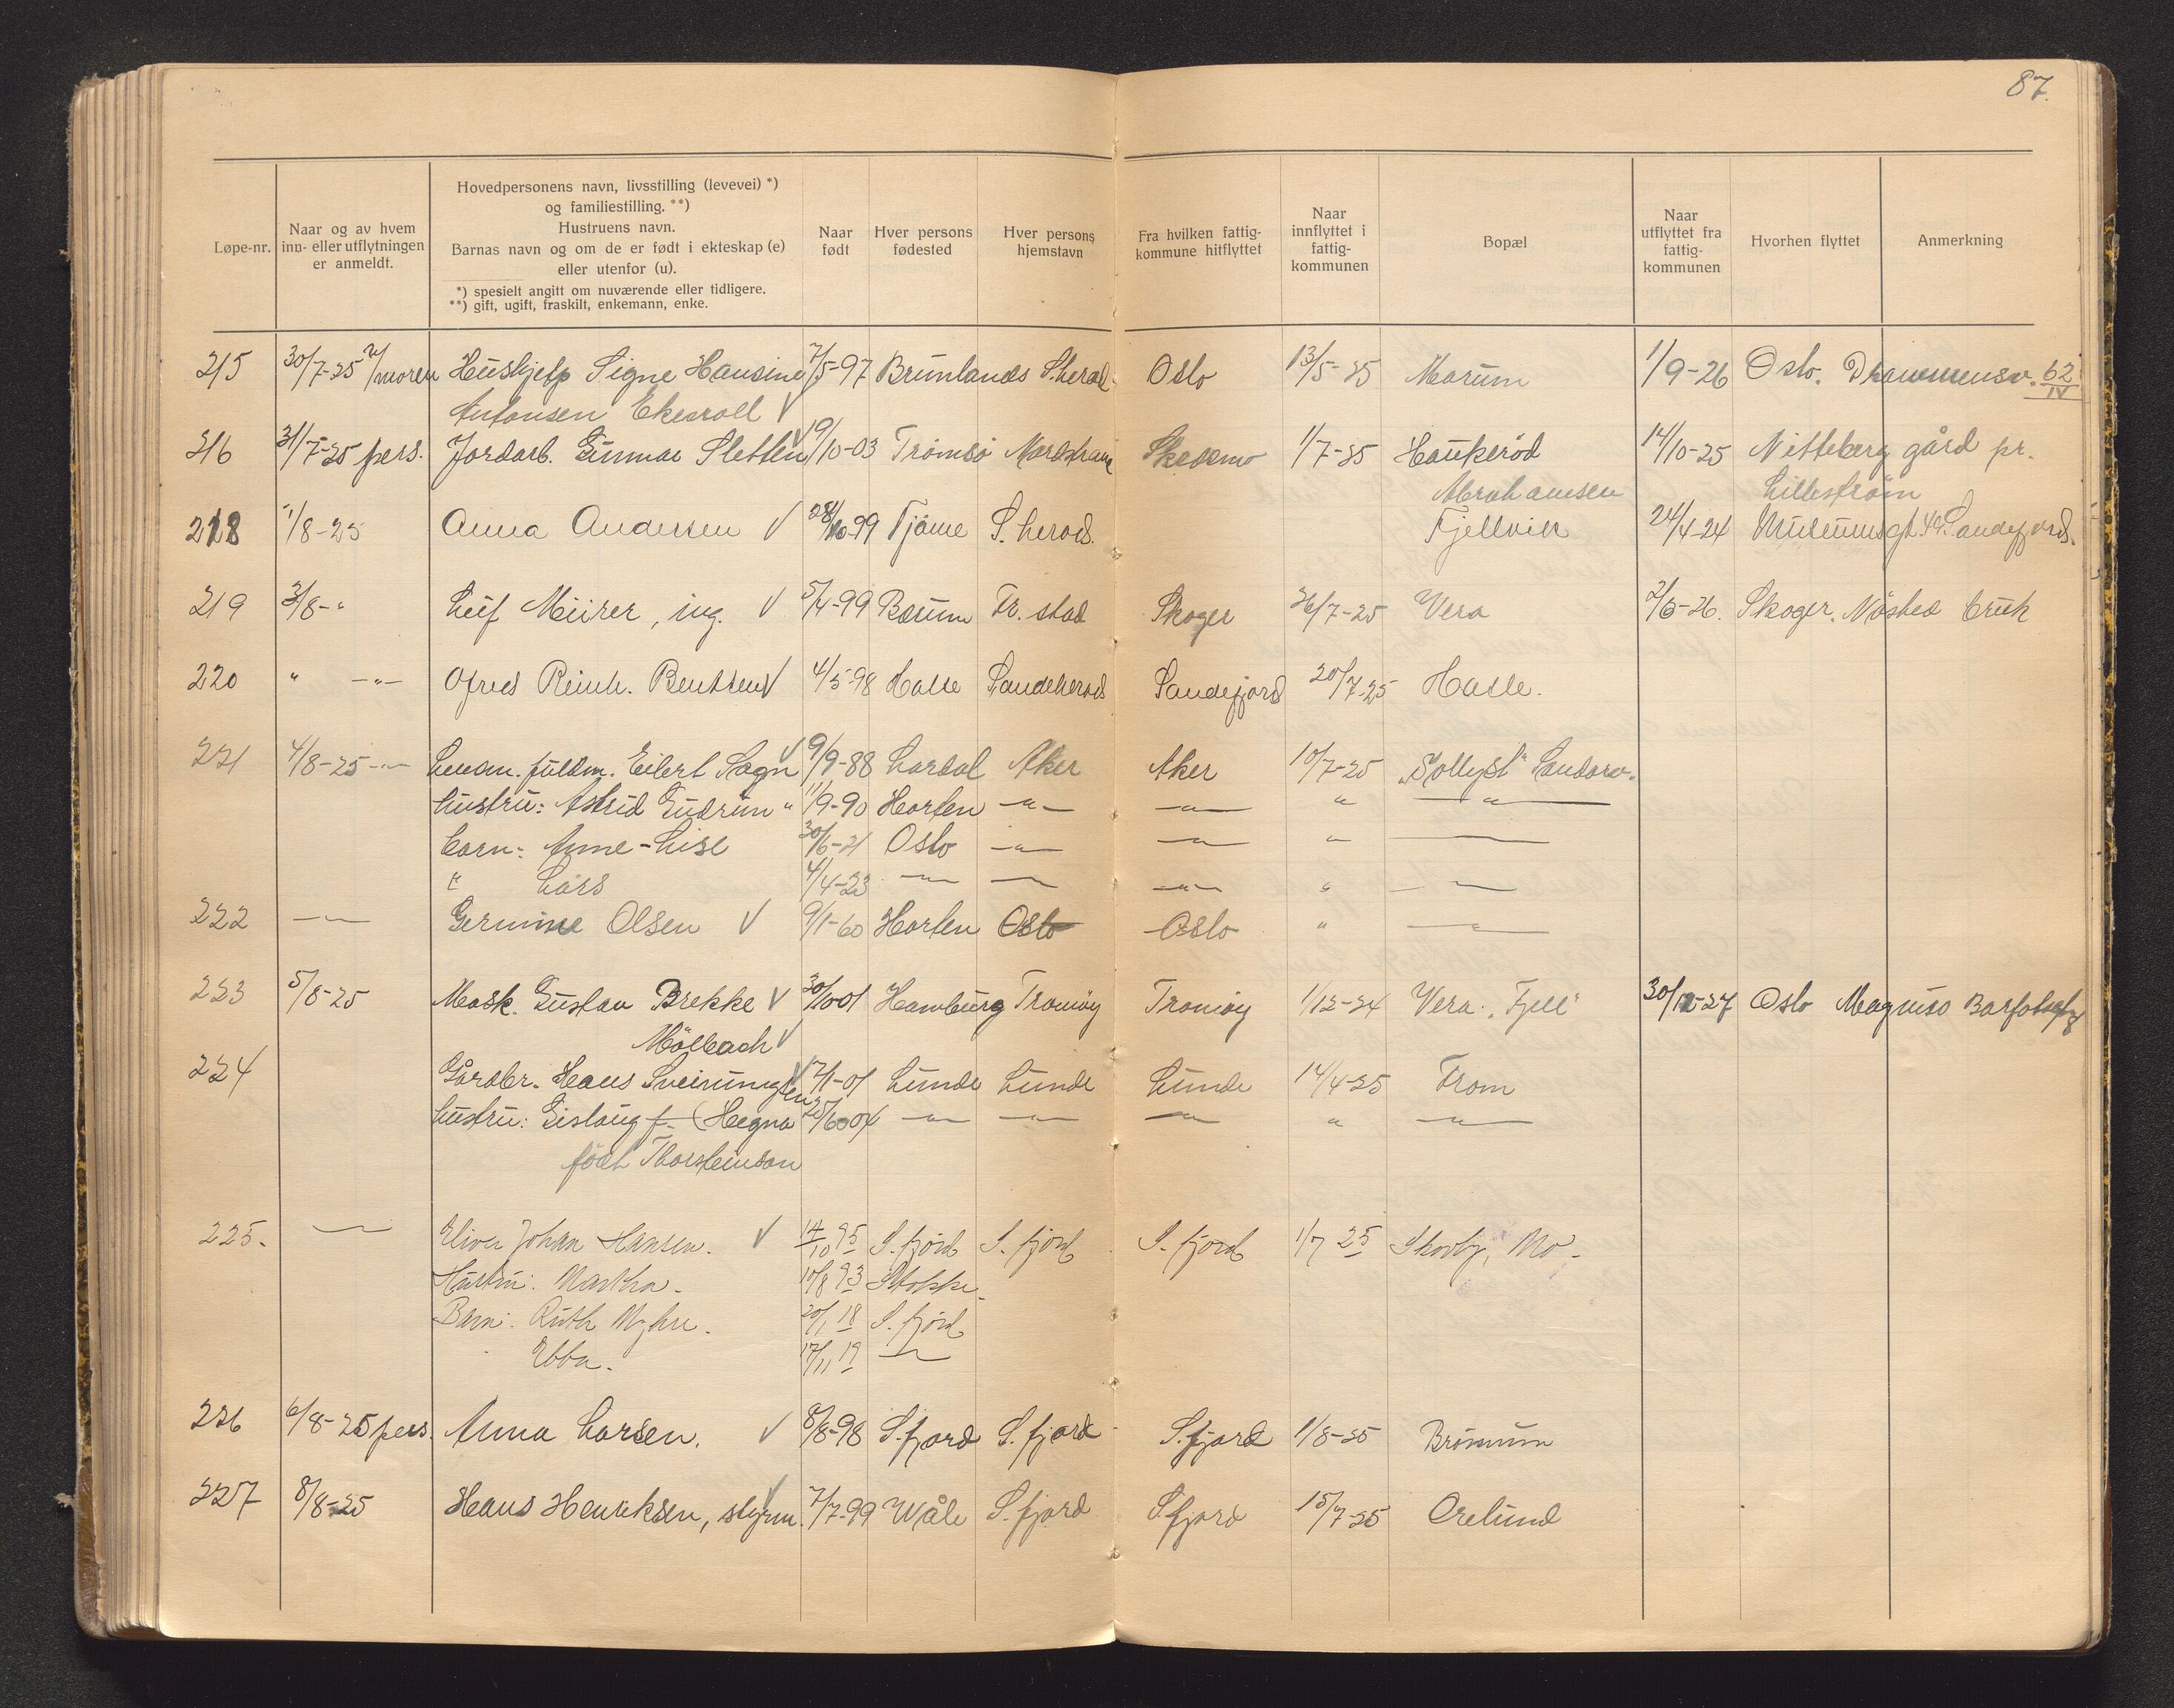 87.
Løpe-nr.
Naar og av hvem
inn- eller utflytningen
er anmeldt.
Hovedpersonens navn, livsstilling (levevei) *)
og familiestilling. **)
Hustruens navn.
Barnas navn og om de er født i ekteskap (e)
eller utenfor (u).
*) spesielt angitt om nuværende eller tidligere.
**) gift, ugift, fraskilt, enkemann, enke.
Naar
født
Hver persons
fødested
Hver persons
hjemstavn
Fra hvilken fattig-
kommune hitflyttet
Naar
innflyttet i
fattig-
kommunen
Bopæl
Naar
utflyttet fra
fattig-
kommunen
Hvorhen flyttet
Anmerkning
215 30/7-25 v/moren Hushjelp Signe Hansine 7/5-97 Brunlanes S.herad. Oslo 13/5-25 Marum 1/9-26 Oslo. Drammensv. 62/IV
Antonsen Ekeroll V
216 31/7-25 pers. Jordarb. Gunnar Sletten V 19/10-03 Tromsø Skedsmo 1/7-25 Haukerød 14/10-25 Nitteberg gård pr.
Abrahamsen Lillestrøm
218 1/8-25 Anna Andersen V 28/10-99 Tjøme S. herad. Fjellvik 24/4-24 Museumsgt. 49. Sandefjord.
219 3/8-" Leif Meirer, ing. V 5/4-99 Bærum Fr. stad Skoger 26/7-25 Vera 2/6-26. Skoger. Nøsted bruk
220 " -"- Ofred Reinh. Bentsen V 4/5-98 Hasle Sandeherad Sandefjord 20/7-25 Hasle.
221 4/8-25 -"- Lensm. fuldm. Eilert Sogn V 9/9-88 Lardal Aker Aker 10/7-25 "Sollyst" Sandarv.
hustru: Astrid Gudrun " 11/9-90 Horten -"- -"- " -"-
barn: Anne-Lise 30/6-21 Oslo -"- -"- " -"-
" Lars 4/4-23 -"- -"- -"- " -"-
222 -"- Germine Olsen V 9/1-60 Horten Oslo Oslo " -"-
223 5/8-25 Mask. Gustav Brekke V 30/10-01 Hamburg Tromøy Tromøy 1/12-24 Vera. "Fjell" 30/12-27 Oslo Magnus Barfotsgt 8
Mølbach V
224 Gårdbr. Hans Sveinungsen V 17/1-01 Lunde Lunde Lunde 14/4-25 From
hustru: Gislaug f. (Hegna 25/6-04 -"- -"- -"- " -"-
født Thorsteinson
225. -"- Oliver Johan Hansen. V 14/10 95 S. fjord S. fjord S. fjord 1/7 25 Skovly, Mo.
Hustru: Martha. 10/8 93 Stokke.
Barn: Ruth Myhre. 20/1 18 S. fjord
Ebba. 17/11 19 -"-
226 6/8-25 pers. Anna Larsen. V 8/8-98 S.fjord S. fjord S.fjord 1/8-25 Brønum
227 8/8-25 Hans Henriksen, styrm. V 7/7-99 Våle S. fjord S.fjord 15/7-25 Orelund